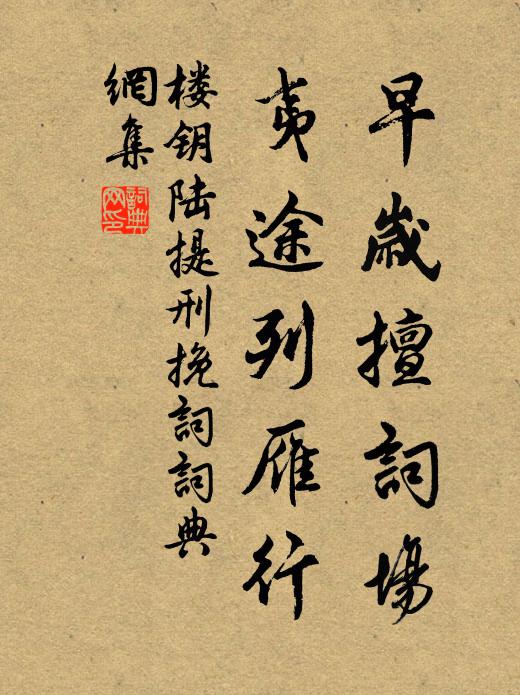 早歲擅詞場
夷途列雁行
楼钥陆提刑挽詞詞典
網集
詞典
网印